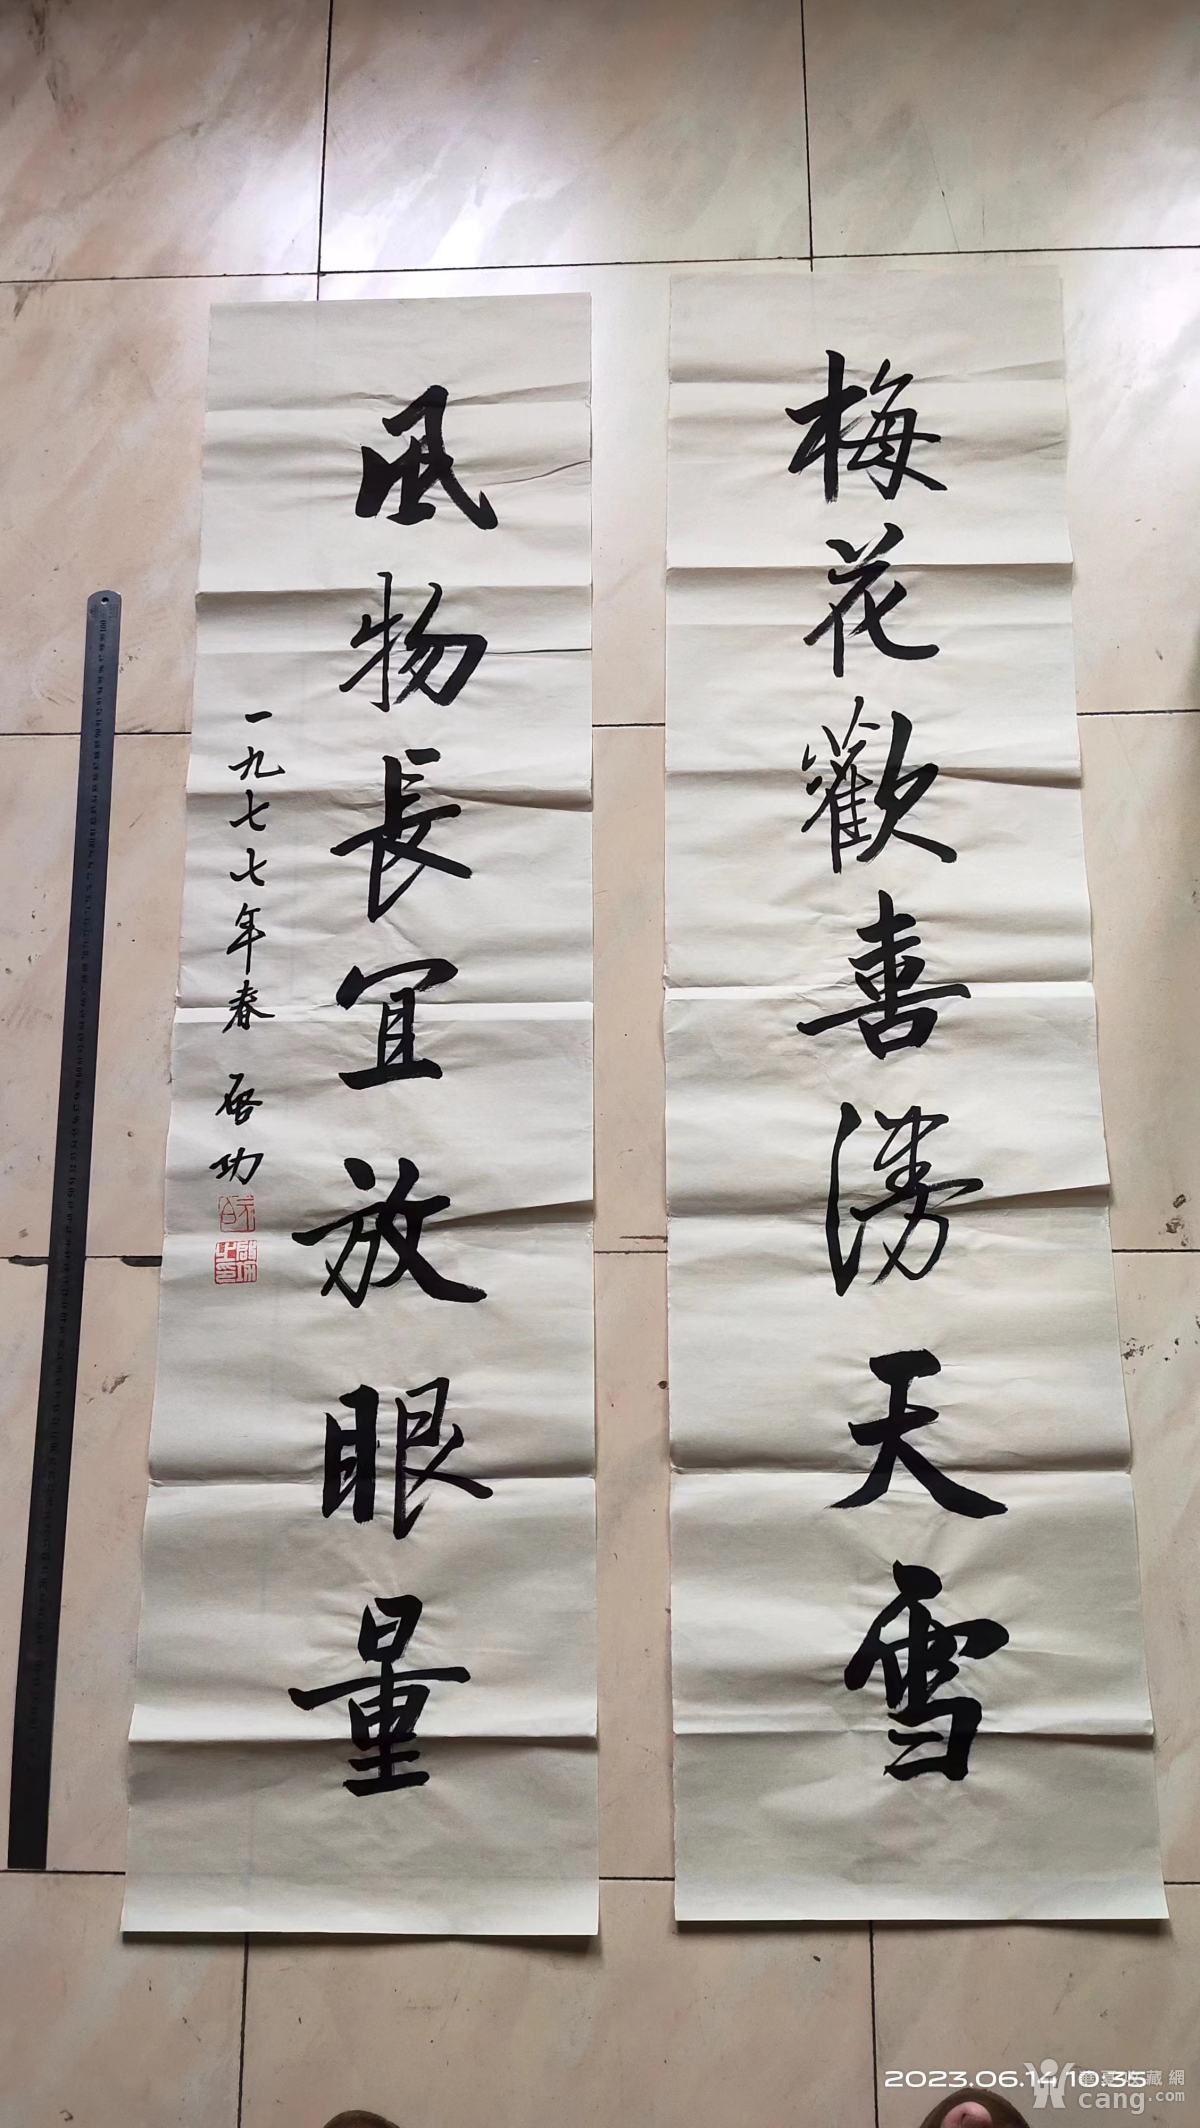 梅花歡喜漫天雪
風物長宜放眼量
一九七七年春 启功
元白
啟功之印
2023.06.14 10:35
華夏收藏網
cang.com